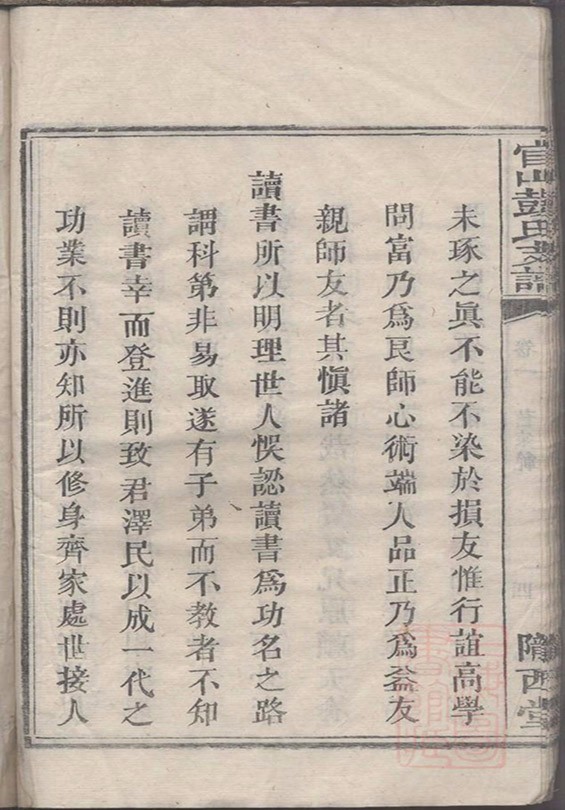 官山彭氏支譜
卷一
四
隴西堂
未琢之眞不能不染於損友惟行誼高學
問富乃爲良師心術端人品正乃爲益友
親師友者其愼諸
讀書所以明理世人悞認讀書爲功名之路
謂科第非易取遂有子弟而不教者不知
讀書幸而登進則致君澤民以成一代之
功業不則亦知所以修身齊家處世接人